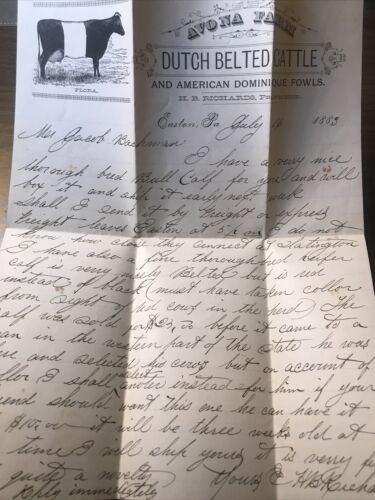 AVONA FARM
DUTCH BELTED CATTLE
AND AMERICAN DOMINIQUE FOWLS.
H. B. RICHARDS, Proprietor
FLORA.
Easton, Pa July 16 1883
Mr Jacob Bachman
I have a very nice
thorough bred Bull Calf for you and will
box it and ship it early next week
Shall I send it by freight or express
freight leaves Easton at 5 p.m. I do not
know how close they connect at Slatington
I have also a fine thoroughbred heifer
calf is very nicely Belted but is red
instead of black (must have taken collor
from sight of red cows in the herd) The
calf was sold for $25.00 before it came to a
man in the western part of the State he was
here and selected his cows but on account of
collor I shall select another instead for him if your
friend should want this one he can have it
$10.00 it will be three weeks old at
time I will ship yours it is very fi
quite a novelty
Reply immediately
Yours &c H B Richa